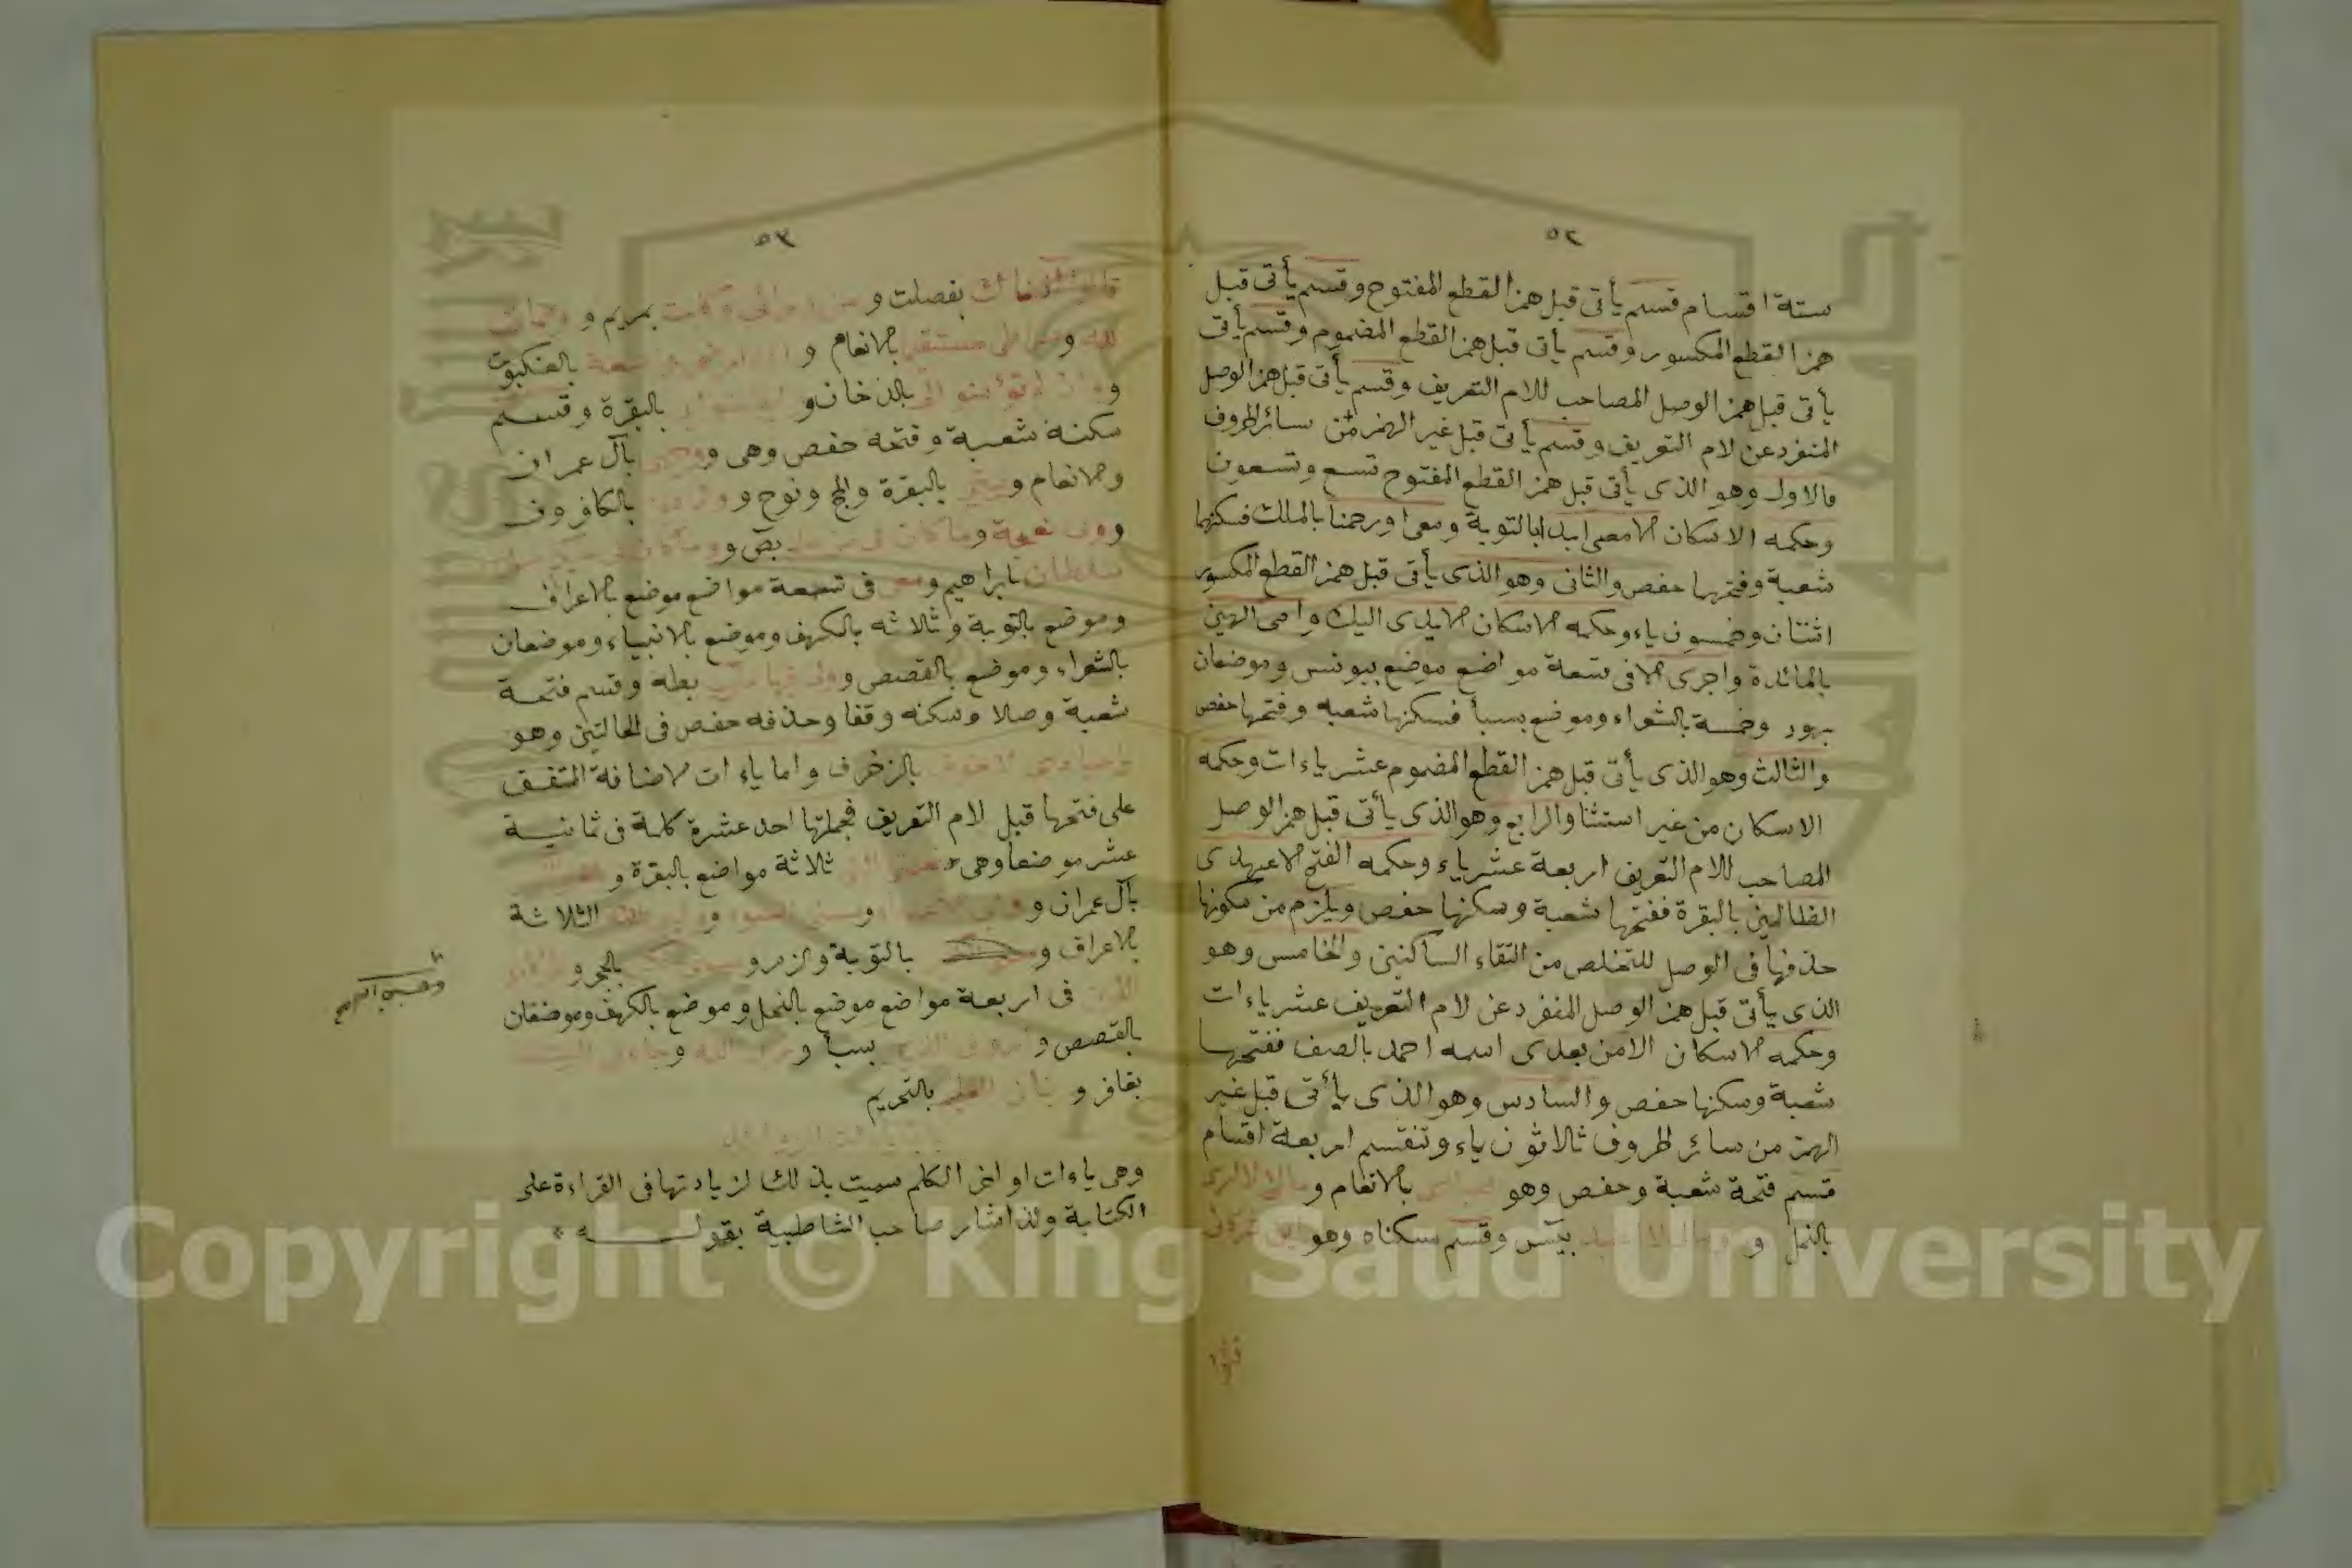 ٢٥
ستة اقسام قسم يأتى قبل همز القطع المفتوح وقسم يأتى قبل
همز القطع المكسور وقسم يأتى قبل همز القطع المضموم وقسم يأتى
يأتى قبل همز الوصل المصاحب للام التعريف وقسم يأتى قبل همز الوصل
المنفرد عن لام التعريف وقسم يأتى قبل غير الهمز من سائر الحروف
فالاول وهو الذى يأتى قبل همز القطع المفتوح تسع وتسعون
وحكمه الاسكان الا معى ابدا بالتوبة ومعى اورحمنا بالملك فسكنها
شعبة وفتحها حفص والثانى وهو الذى يأتى قبل همز القطع المكسور
اثنتان وخمسون ياء وحكمه الاسكان الا يدى اليك وامى الهين
بالمائدة واجرى الا فى تسعة مواضع موضع بيونس وموضعان
بهود وخمسة بالشعراء وموضع بسبأ فسكنها شعبه وفتحها حفص
والثالث وهو الذى يأتى قبل همز القطع المضموم عشر ياءات وحكمه
الاسكان من غير استثنا والرابع وهو الذى يأتى قبل همز الوصل
المصاحب للام التعريف اربعة عشر ياء وحكمه الفتح الا عهدى
الظالمين بالبقرة ففتحها شعبة وسكنها حفص ويلزم من سكونها
حذفها فى الوصل للتخلص من التقاء الساكنين والخامس وهو
الذى يأتى قبل همز الوصل المنفرد عن لام التعريف عشر ياءات
وحكمه الاسكان الا من بعدى اسمه احمد بالصف ففتحها
شعبة وسكنها حفص والسادس وهو الذى يأتى قبل غير
الهمز من سائر الحروف ثلاثون ياء وتنقسم اربعة اقسام
قسم فتحه شعبة وحفص وهو بالانعام و مالى لا ارى
بالنمل و ومالى لا اعبد بيس وقسم سكناه وهو
٣٥
بفصلت و من ورائى وكانت بمريم و
لله و صراطى مستقيما بالانعام و بالعنكبوت
و وان لم تؤمنوا لى بالدخان و بالبقرة وقسم
سكنه شعبة وفتحه حفص وهى وجهى بآل عمران
والانعام و بيتى بالبقرة والحج ونوح و ولى دين بالكافرون
و ولى نعجة وما كان لى من علم بص و وما كان لى عليكم من
سلطان بابراهيم و معى فى تسعة مواضع موضع بالاعراف
وموضع بالتوبة وثلاثه بالكهف وموضع بالانبياء وموضعان
بالشعراء وموضع بالقصص و ولى فيها مآرب بطه وقسم فتحه
شعبة وصلا وسكنه وقفا وحذفه حفص فى الحالتين وهو
يا عبادى لا خوف بالزخرف واما ياءات الاضافة المتفق
على فتحها قبل لام التعريف فجملتها احد عشرة كلمة فى ثمانية
عشر موضعا وهى نعمتى التى ثلاثة مواضع بالبقرة و
بآل عمران و و مسنى السوء و الثلاثة
بالاعراف و بالتوبة والزمر و بالحجر و
الذين فى اربعة مواضع موضع بالنحل وموضع بالكهف وموضعان
بالقصص و ارونى الذين بسبأ و ربى الله و جاءنى البينات
بغافر و نبأنى العليم بالتحريم
وهى ياءات اواخر الكلم سميت بذلك لزيادتها فى القراءة على
الكتابة ولذا اشار صاحب الشاطبية بقوله
Copyright © King Saud University